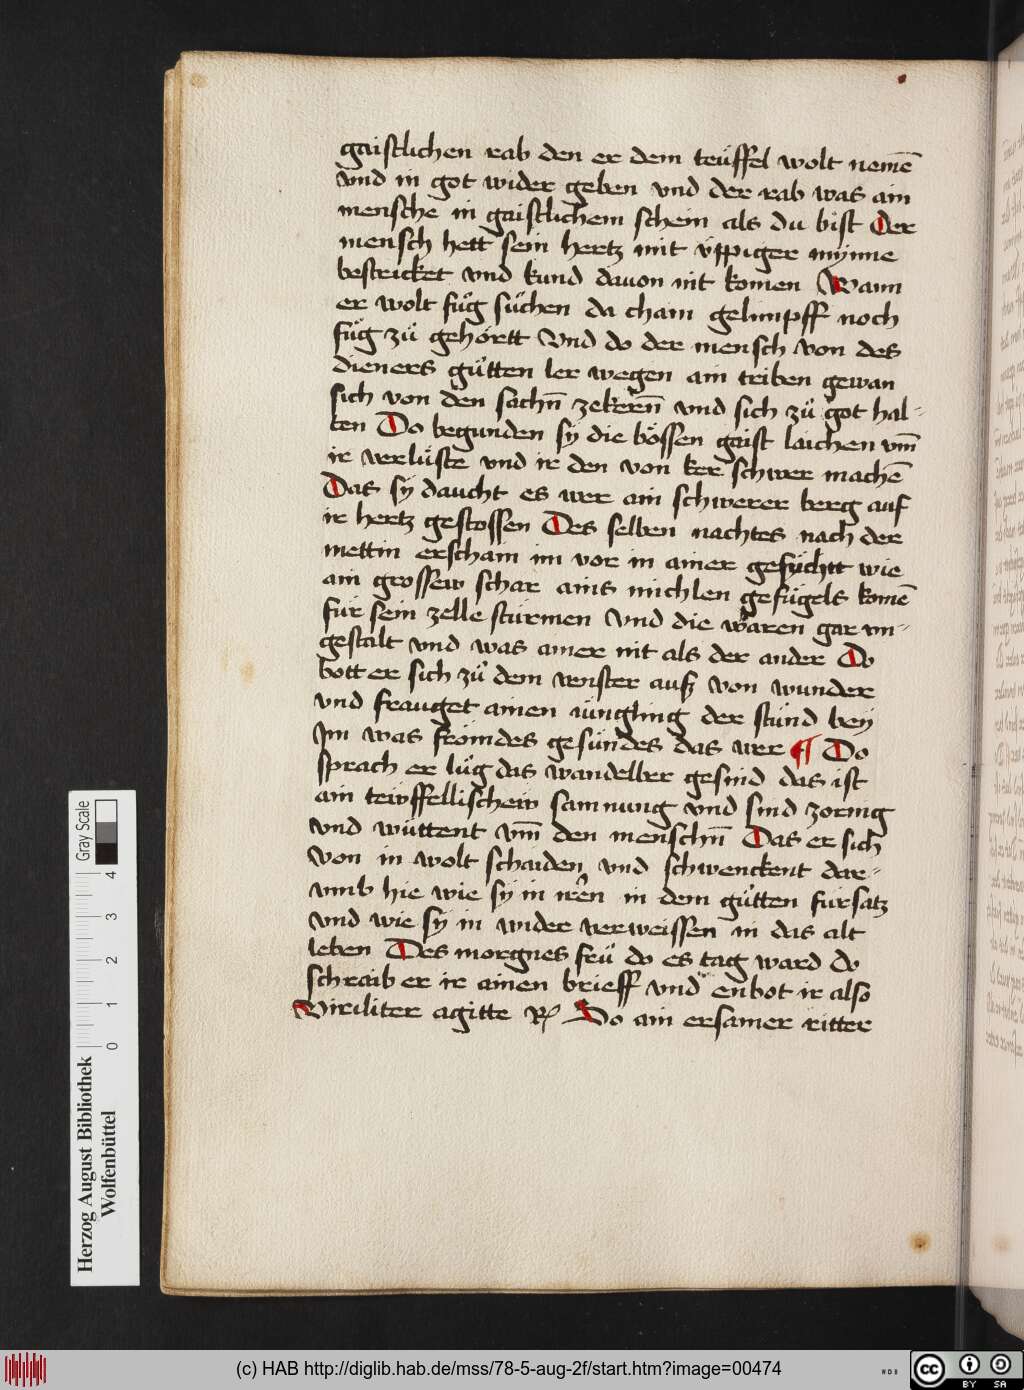 gaistlichen rab den er dem teüffel wolt nemē
vnd in got wider geben vnd der rab was ain
mensche in gaistlichem schein als du bist Der
mensch hett sein hertz mit v̈ppiger mynne
bestricket vnd kund dauon nit komen Wann
er wolt füg süchen da cham gelimpff noch
füg zü gehörtt Vnd do der mensch von des
dieners gütten ler wegen ain triben gewan
sich von den sachn̄ zekerēn vnd sich zü got hal-
ten Do begunden sy die bössen gaist laichen vm̄
ir verlüste vnd ir den von ker schwer machē
Das sy daucht es wer ain schwerer berg auf
ir hertz gestossen Des selben nachtes nach der
mettin erschain im vor in ainer gesychtt wie
ain grossew schar ains michlen gefügels komē
für sein zelle stürmen Vnd die wären gar vn-
gestalt vnd was ainer nit als der ander Do
bott er sich zü dem venster ausz von wunder
vnd frauget ainen iüngling der stünd bey
Im was frömdes gesündes das wer ¶ Do
sprach er lüg das wandelber gesind das ist
ain tewffellischew samnung vnd sind zornig
vnd wüttent vm̄ den menschn̄ Das er sich
von in wolt schaiden vnd schwenckent dar-
vmb hie wie sy in irēn in dem gütten fürsatz
vnd wie sy in wider verweissen in das alt
leben Des morgnes frü do es tag ward do
schraib er ir ainen brieff vnd enbot ir also
Viriliter agitte Do ain ersamer ritter
Herzog August Bibliothek
Wolfenbüttel
0 1 2 3 4
Gray Scale
(c) HAB http://diglib.hab.de/mss/78-5-aug-2f/start.htm?image=00474
WDB
cc
BY SA